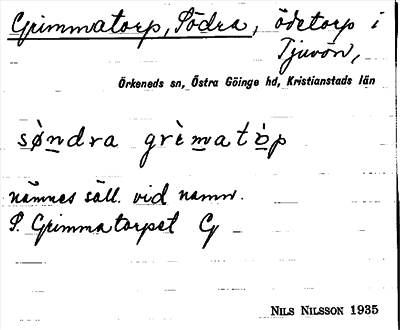 Grimmatorp, Södra, ödetorp i
Tjuvön,
Örkeneds sn, Östra Göinge hd, Kristianstads län
sø̀ndra grìmatòp
nämnes säll. vid namn.
S. Grimmatorpet G
NILS NILSSON 1935